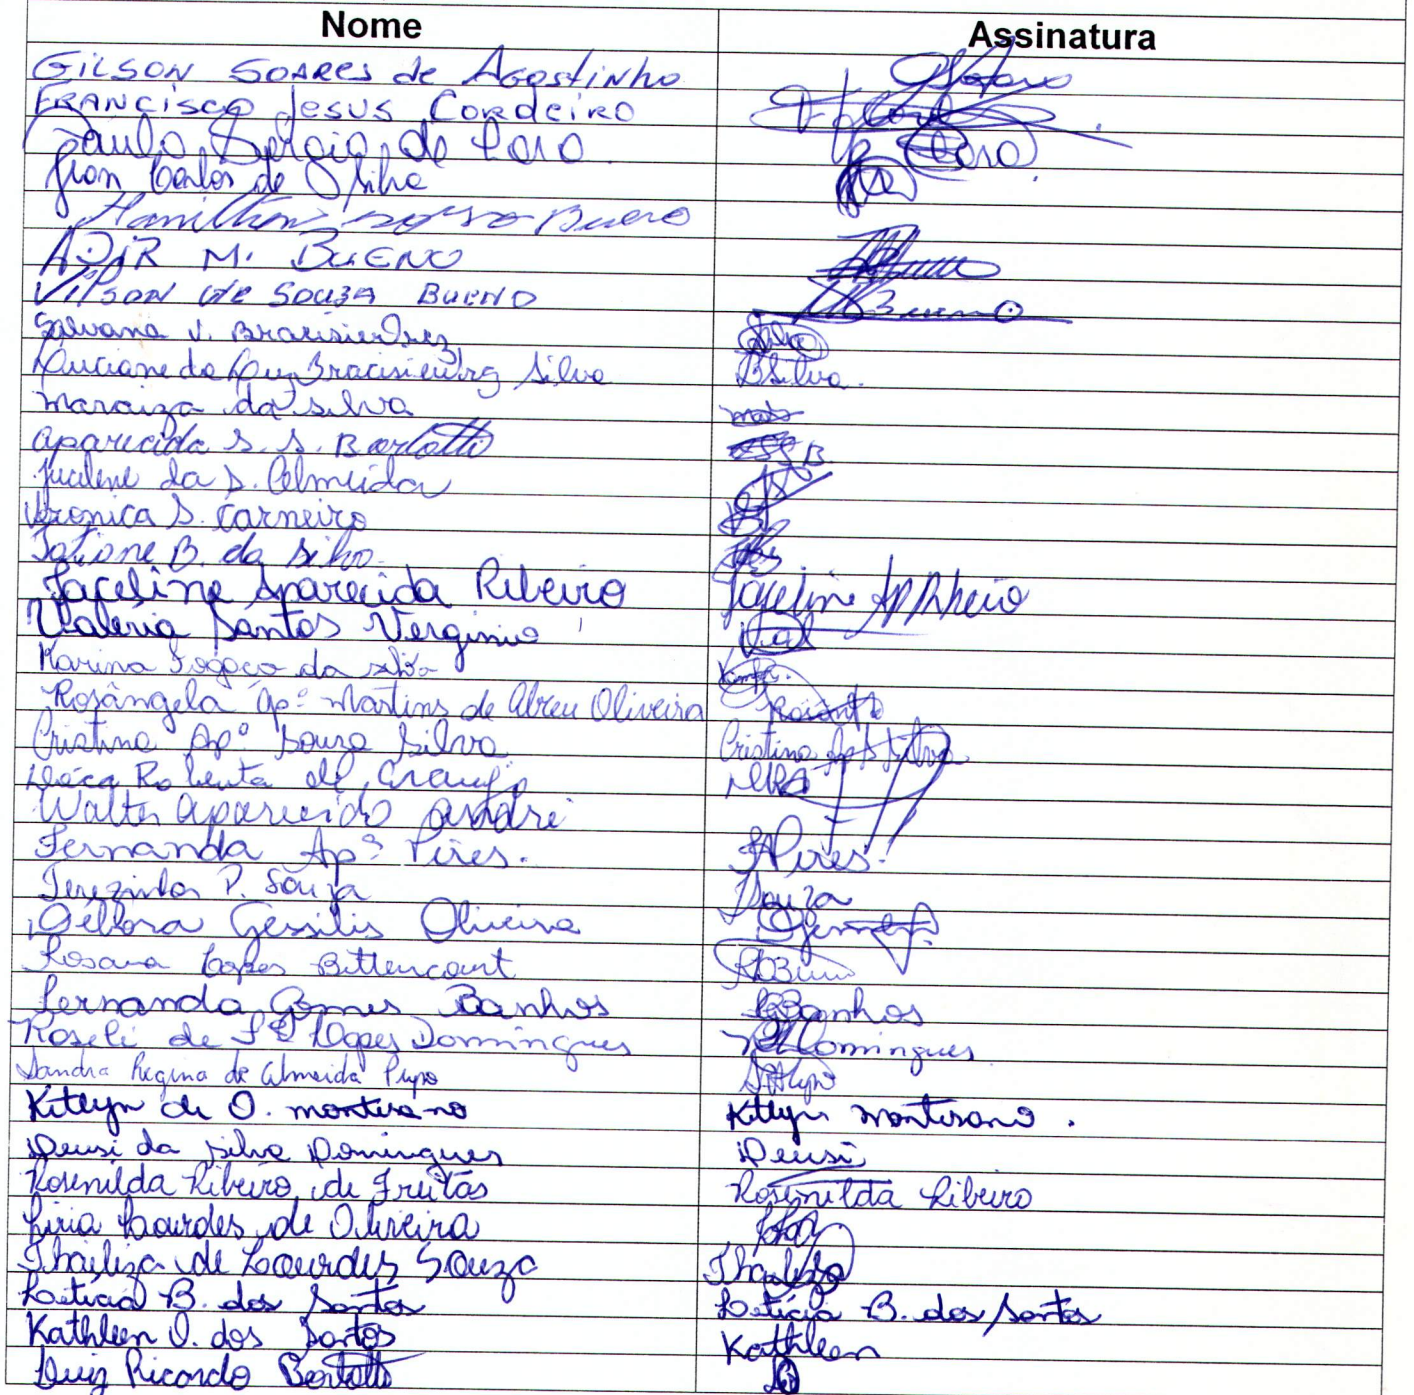 Nome Assinatura
Gilson Soares de Agostinho
Francisco Jesus Cordeiro
Paulo Sergio de
Jean Carlos de Silva
Hamilton Bueno
ADIR M. BUENO
Vilson de Souza Bueno Bueno
V.
Luciane da Luz Silva BSilva.
Maraiza da Silva
Aparecida S. S. Bortotti B.
Jucilene da S. Almeida
Veronica S. Carneiro
Tatiane B. da Silva
Jaceline Aparecida Ribeiro Jaceline Ap Ribeiro
Valeria Santos Verginio Val
Karina Fogaça da Silva
Rosângela Apª Martins de Abreu Oliveira
Cristina Apª Souza Silva Cristina Ap S Silva
Roberta de Araujo
Walter Aparecido André
Fernanda Apª Pires. FAPires.
Terezinha P. Souza Souza
Débora Gessilis Oliveira
Rosana Lopes Bittencourt
Fernanda Gomes Banhos Banhos
Roseli de Lopes Domingues Domingues
Sandra Regina de Almeida Pupo
Kitlyn de O. montesano Kitlyn montesano.
Deusi da Silva Domingues Deusi
Rosenilda Ribeiro de Freitas Rosenilda Ribeiro
Liria Lourdes de Oliveira
Thailiza de Lourdes Souza
Leticia B. dos Santos Leticia B. dos Santos
Kathleen O. dos Santos Kathleen
Luiz Ricardo Bortotti